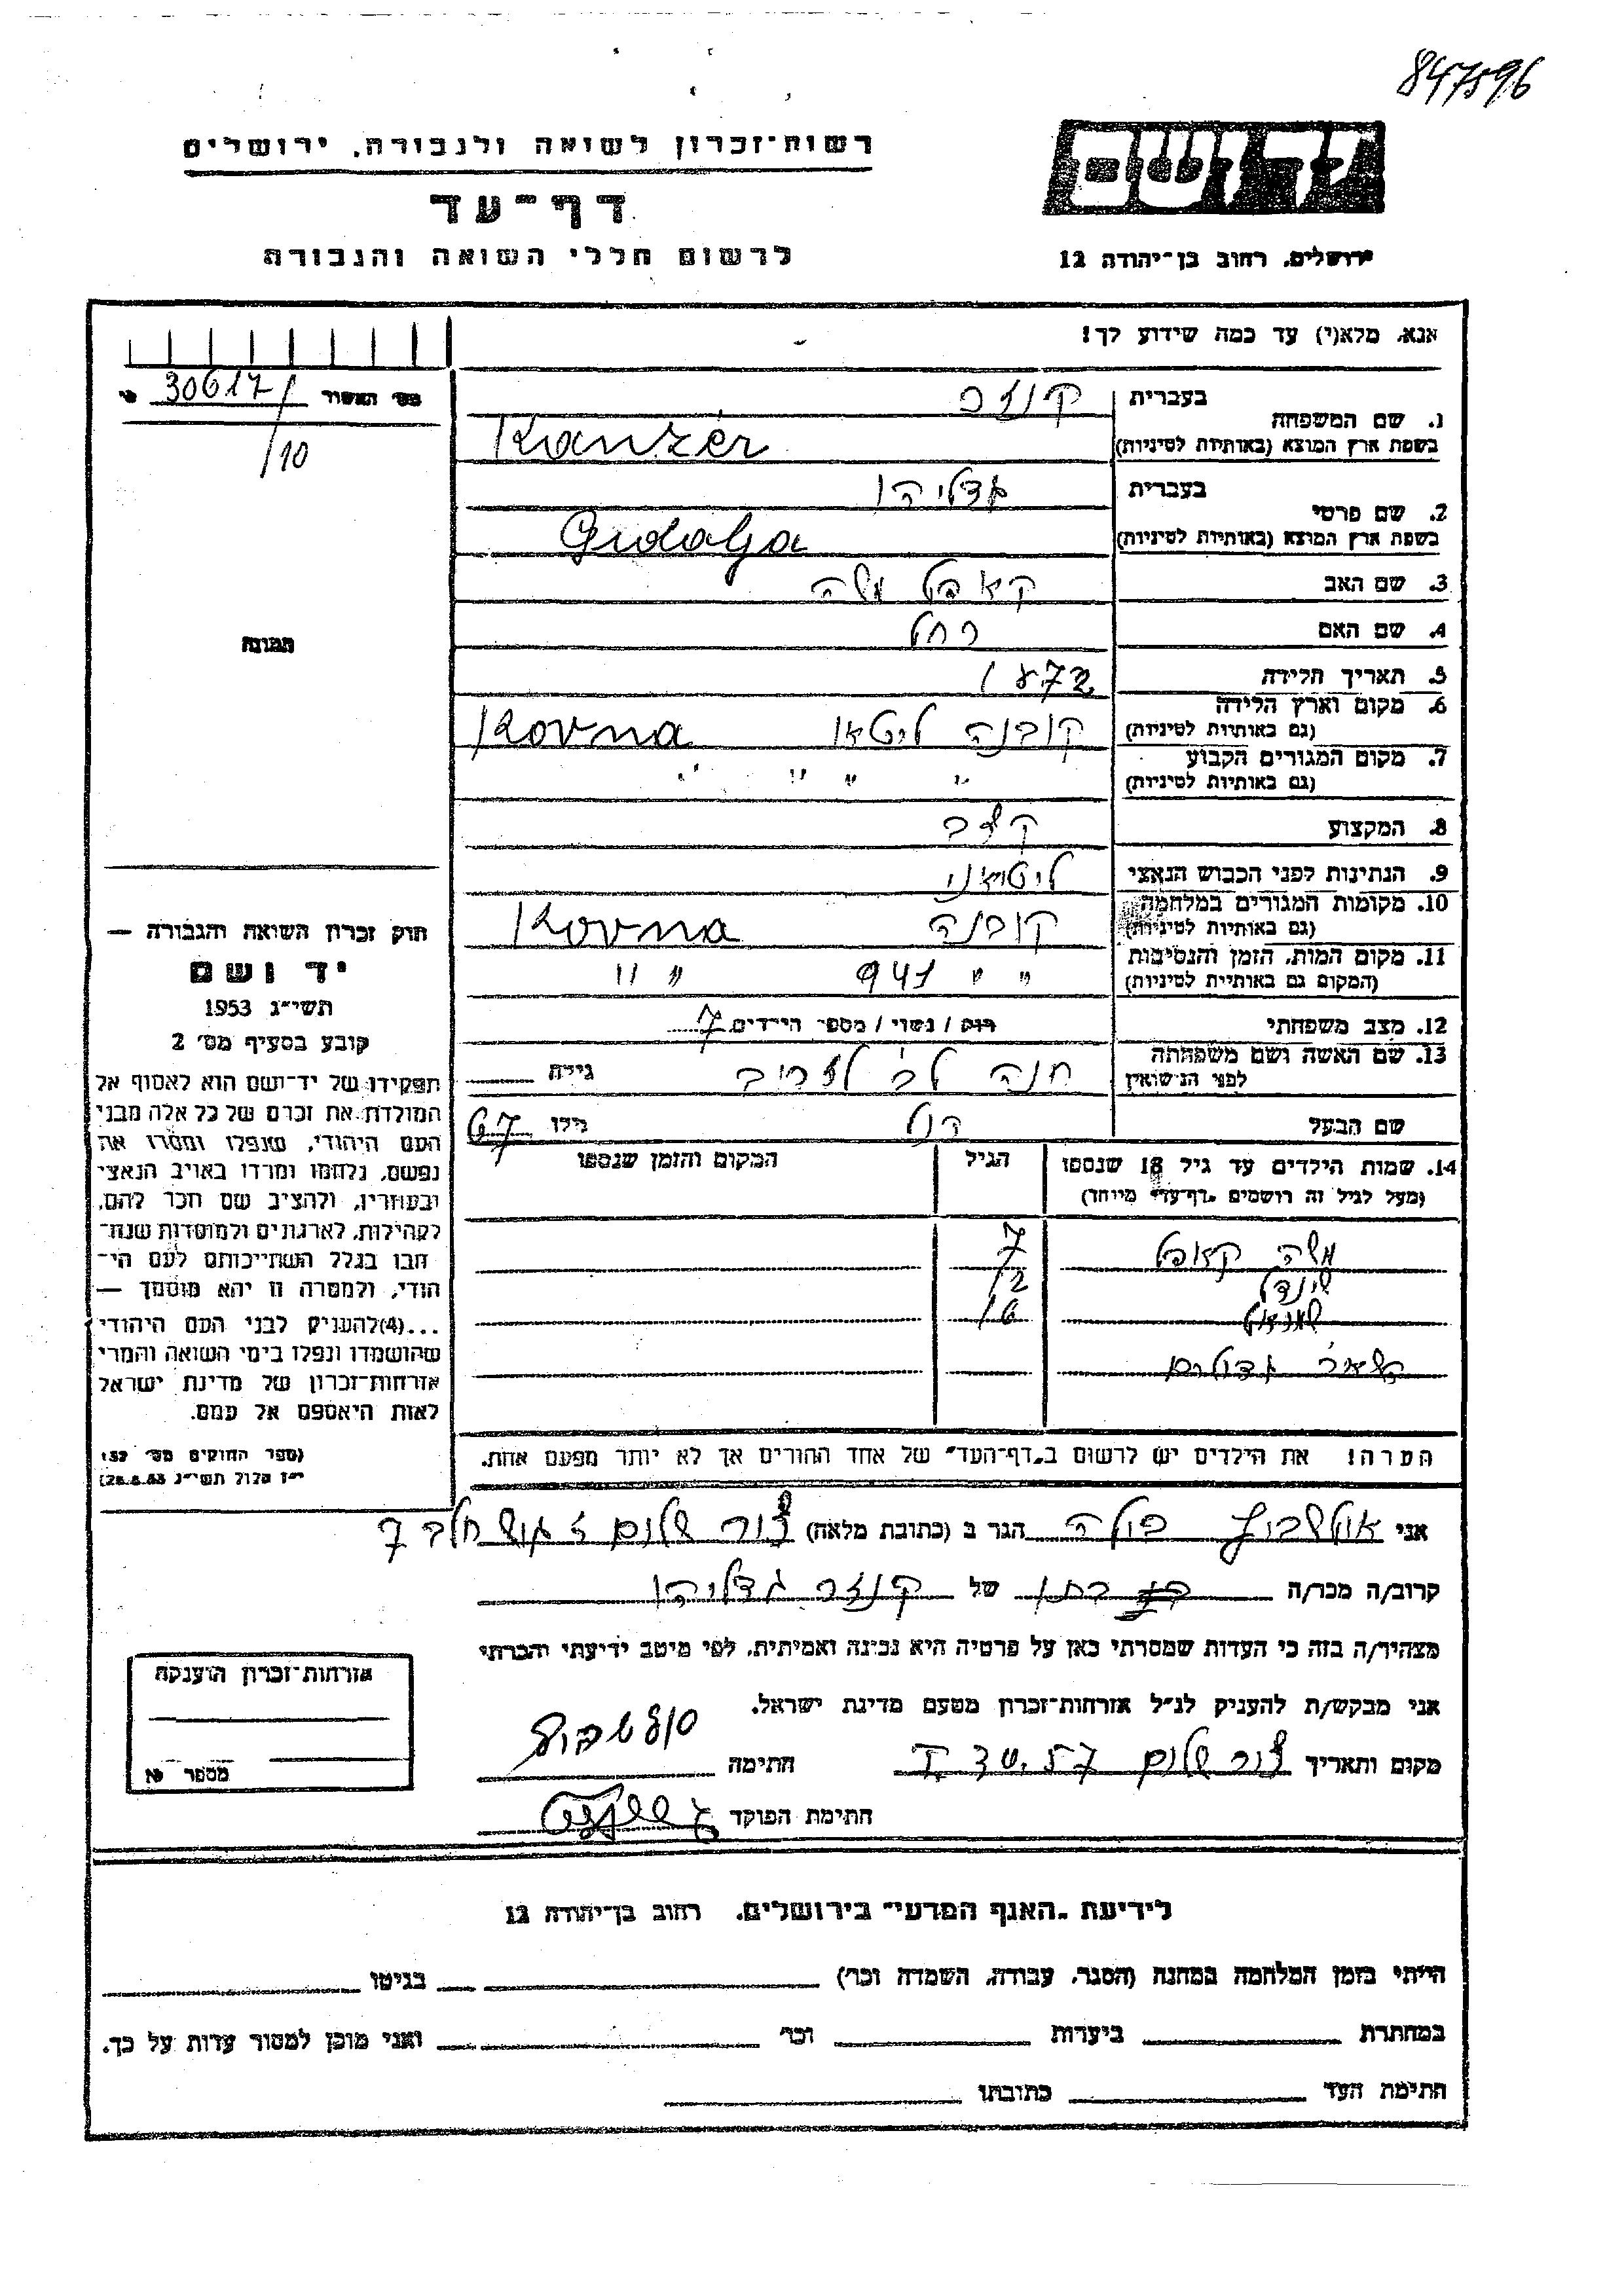 847596
רשות-זכרון לשואה ולגבורה, ירושלים
דף-עד
לרשום חללי השואה והגבורה
יד ושם
ירושלים, רחוב בן-יהודה 12
אנא, מלא(י) עד כמה שידוע לך!
מס׳ האשור 30617/
/10
תמונה
1. שם המשפחה
בעברית קנזר
בשפת ארץ המוצא (באותיות לטיניות) Kanzer
2. שם פרטי
בעברית גדליהו
בשפת ארץ המוצא (באותיות לטיניות) Gudalja
3. שם האב קאפל משה
4. שם האם רחל
5. תאריך הלידה 1872
6. מקום וארץ הלידה (גם באותיות לטיניות) קובנה ליטא Kovna
7. מקום המגורים הקבוע (גם באותיות לטיניות) " " " "
8. המקצוע קצב
9. הנתינות לפני הכבוש הנאצי ליטואני
10. מקומות המגורים במלחמה (גם באותיות לטיניות) קובנה Kovna
11. מקום המות, הזמן והנסיבות (המקום גם באותיות לטיניות) " " 941 " "
12. מצב משפחתי רווק / נשוי / מספר הילדים 7
13. שם האשה ושם משפחתה לפני הנישואין חנה לב גילה
שם הבעל גילו 67
14. שמות הילדים עד גיל 18 שנספו (מעל לגיל זה רושמים "דף-עד" מיוחד) הגיל המקום והזמן שנספו
משה קאפל 7
שינדל 12
16
השאר גדולים
הערה! את הילדים יש לרשום ב"דף-העד" של אחד ההורים אך לא יותר מפעם אחת.
אני הגר ב (כתובת מלאה) צור שלום
קרוב/ה מכר/ה חתן של קנזר גדליהו
מצהיר/ה בזה כי העדות שמסרתי כאן על פרטיה היא נכונה ואמיתית, לפי מיטב ידיעתי והכרתי
אני מבקש/ת להעניק לנ"ל אזרחות-זכרון מטעם מדינת ישראל.
מקום ותאריך צור שלום חתימה
חתימת הפוקד
חוק זכרון השואה והגבורה —
יד ושם
תשי"ג 1953
קובע בסעיף מס׳ 2
תפקידו של יד-ושם הוא לאסוף אל
המולדת את זכרם של כל אלה מבני
העם היהודי, שנפלו ומסרו את
נפשם, נלחמו ומרדו באויב הנאצי
ובעוזריו, ולהציב שם וזכר להם,
לקהילות, לארגונים ולמוסדות שנח-
רבו בגלל השתייכותם לעם הי-
הודי, ולמטרה זו יהא מוסמך —
...(4) להעניק לבני העם היהודי
שהושמדו ונפלו בימי השואה והמרי
אזרחות-זכרון של מדינת ישראל
לאות היאספם אל עמם.
(ספר החוקים מס׳ 132
י"ז אלול תשי"ג 28.8.53)
אזרחות-זכרון הוענקה
מספר
לידיעת "האגף המדעי" בירושלים, רחוב בן-יהודה 12
הייתי בזמן המלחמה במחנה (הסגר, עבודה, השמדה וכו׳) בגיטו
במחתרת ביערות וכו׳ ואני מוכן למסור עדות על כך.
חתימת העד כתובתו